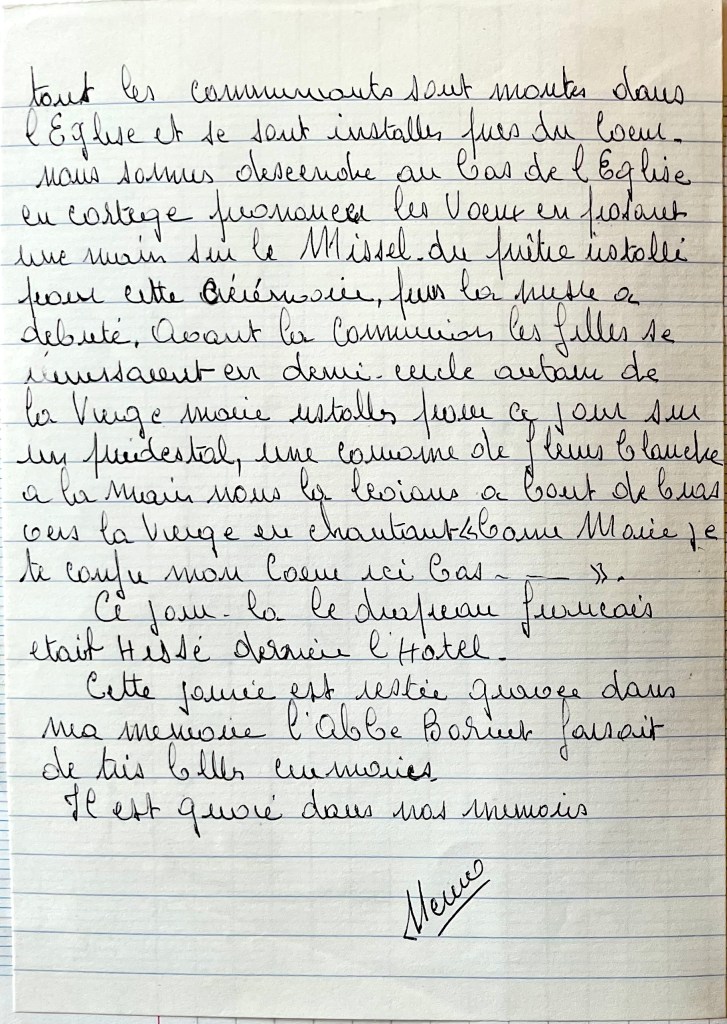 tout les communiants sont montes dans
l'Eglise et se sont installes pres du Coeur.
nous sommes descendre au bas de l'Eglise
en cortege prononcer les Voeux en posant
une main sur le Missel du prêtre installé
pour cette Cérémonie, puis la messe a
debuté. Avant la Communion les filles se
réunissaient en demi-cercle autour de
la Vierge marie installes pour ce jour sur
un piedestal, une couronne de fleurs blanche
a la main nous la levions a bout de bras
vers la Vierge en chantant «Bonne Marie je
te confie mon Coeur ici bas - — ».
Ce jour-la le drapeau francais
etait Hissé derriére l'Hotel.
Cette journée est restée gravee dans
ma memoire l'Abbe faisait
de tres belles ceremonies.
Il est gravé dans nos memoires